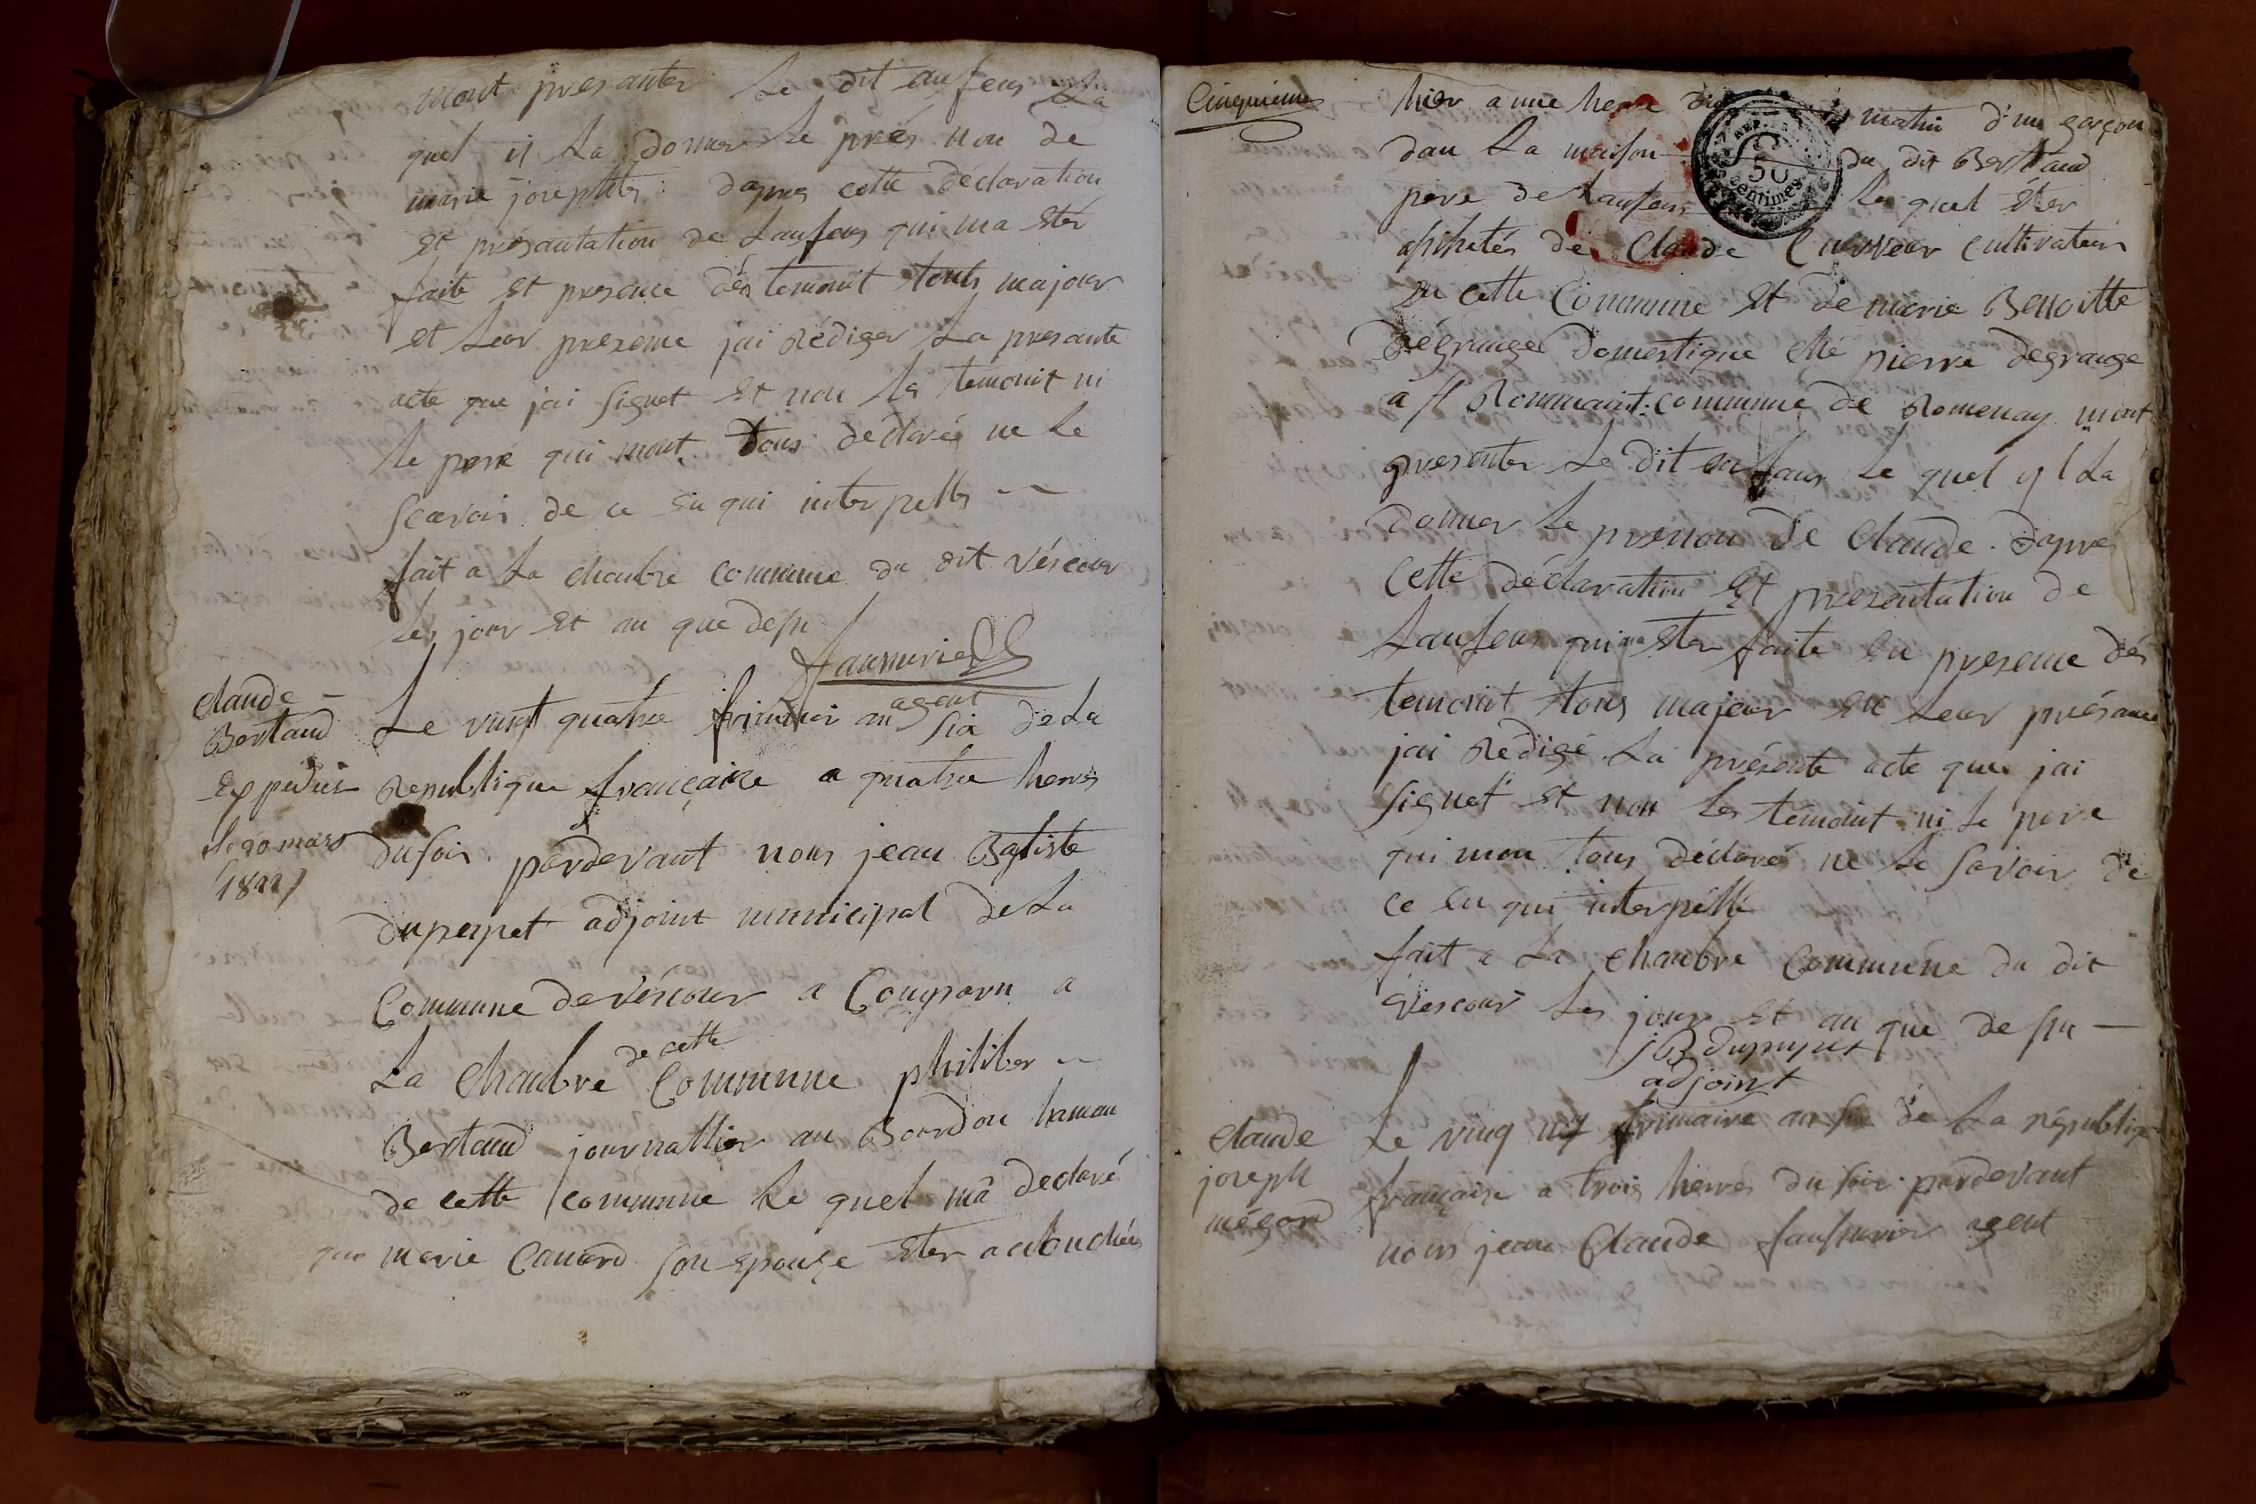 mont presanter Le dit anfens La
quel il La donner Le prés non de
marie josephte : dapres cette declaration
Et présantation de Lanfens qui ma Eter
faite Et presence dés temonit touts majour
et Leur presence jai Rédiger La presante
acte que jai signet Et non les temonit ni
le pere qui mont Tous déclarée ne le
scavoir de ce En qui interpellés
fait a La chanbre commune du dit vèscour
Les jour Et an que desu
faunurier
agent
claude
Bertaud
Expediér
le 20 mars
1822
Le vingt quatre frimer an six de La
Republique française a quatre heres
du soir pardevant nous jean Batiste
duperpet adjoint municipal de La
Commune de véscour a Comparu a
La Chanbre de cette Commune philiber
Bertaud journallier au Bourdon hamau
de cette commune Le quel mâ declaré
que marie Canard son Epouse Eter acouchée
Cinquieme
hier a une here du matin d'un garçon
dan La maison du dit Bertaud
REP.
50
centimes
pere de Lanfans Le quel Eter
asistés de Claude Curveur cultivateur
en cette Commune Et de marie Benoitte
dégrange domestique ché pierre degrange
a st Rommaint commune de Romenay mont
presenter Le dit enfans Le quel yl La
donner Le prenon de Claude . dapres
cette déclaration Et presentation de
Lanfens qui ma Eter faite en presence dés
temonit tous majeur en Leur présance
jai Redigé La présente acte que jai
signet Et non Les temonit ni Le pere
qui mon tous déclaré ne le savoir de
ce en qui interpéllé
fait a La chanbre Commune du dit
vescour Les jour Et an que desu
JB duperpet
adjoint
claude
joseph
mégard
Le ving nef frimaire an six de La républiq
française a trois heres du soir pardevant
nous jean Claude faunurier agent